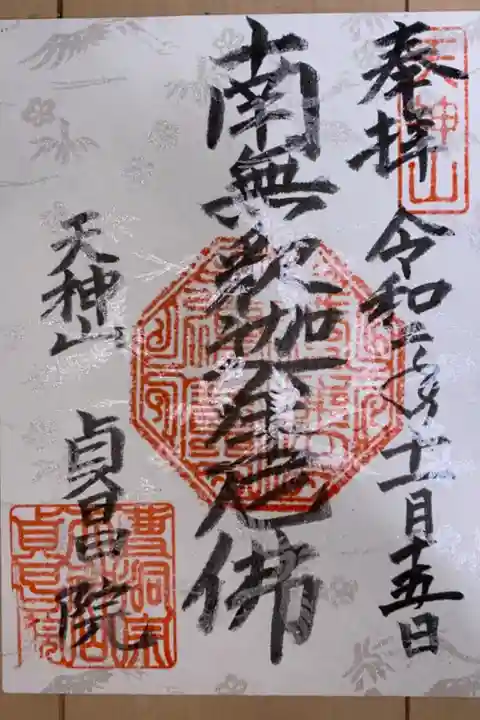 奉拝
令和二年十一月十五日
南無釈迦牟尼佛
天神山
貞昌院
天神山
曹洞宗